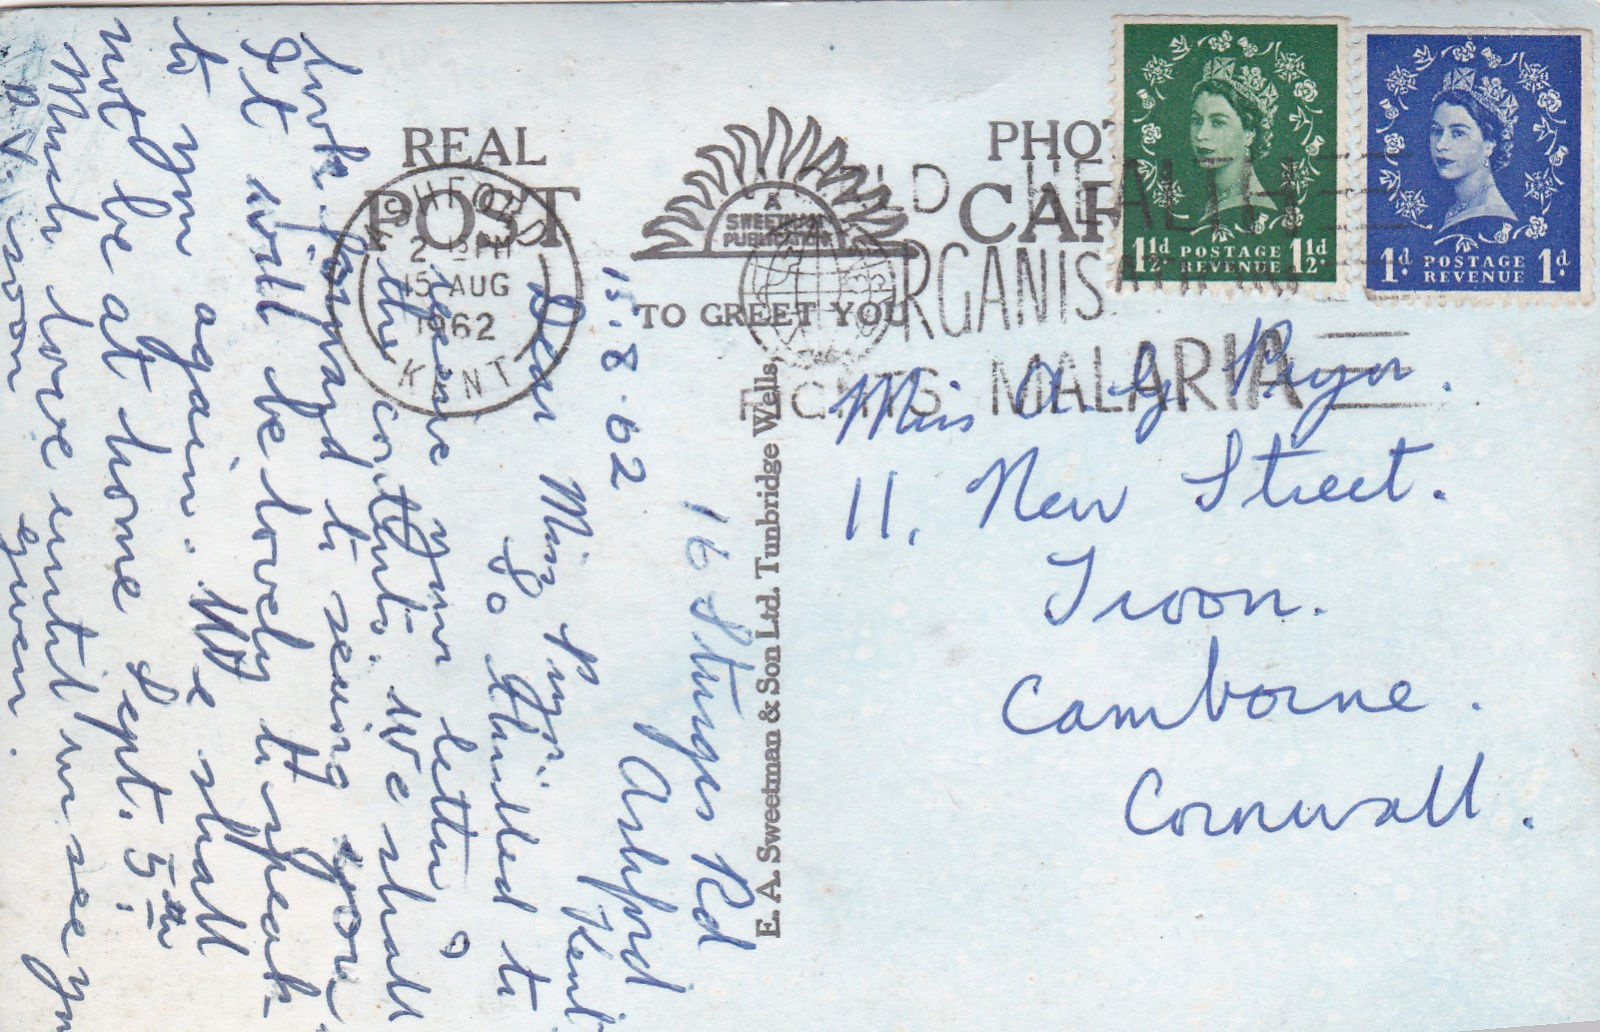 REAL PHOTO
POST CARD
A
SWEETMAN
PUBLICATION
TO GREET YOU
ASHFORD
2 15 PM
15 AUG
1962
KENT
WORLD HEALTH
ORGANISATION
FIGHTS MALARIA
1½d POSTAGE 1½d
REVENUE
1d POSTAGE 1d
REVENUE
E. A. Sweetman & Son Ltd. Tunbridge Wells
Miss A. G. Pryor.
11, New Street.
Troon.
Camborne.
Cornwall.
16 Sturges Rd
Ashford
Kent
15.8.62
Dear Miss Pryor.
So thrilled to
receive your letter &
the contents. We shall
look forward to seeing you
It will be lovely to speak
to you again. We shall
not be at home Sept. 5th.
Much love until we see you
D.V. soon